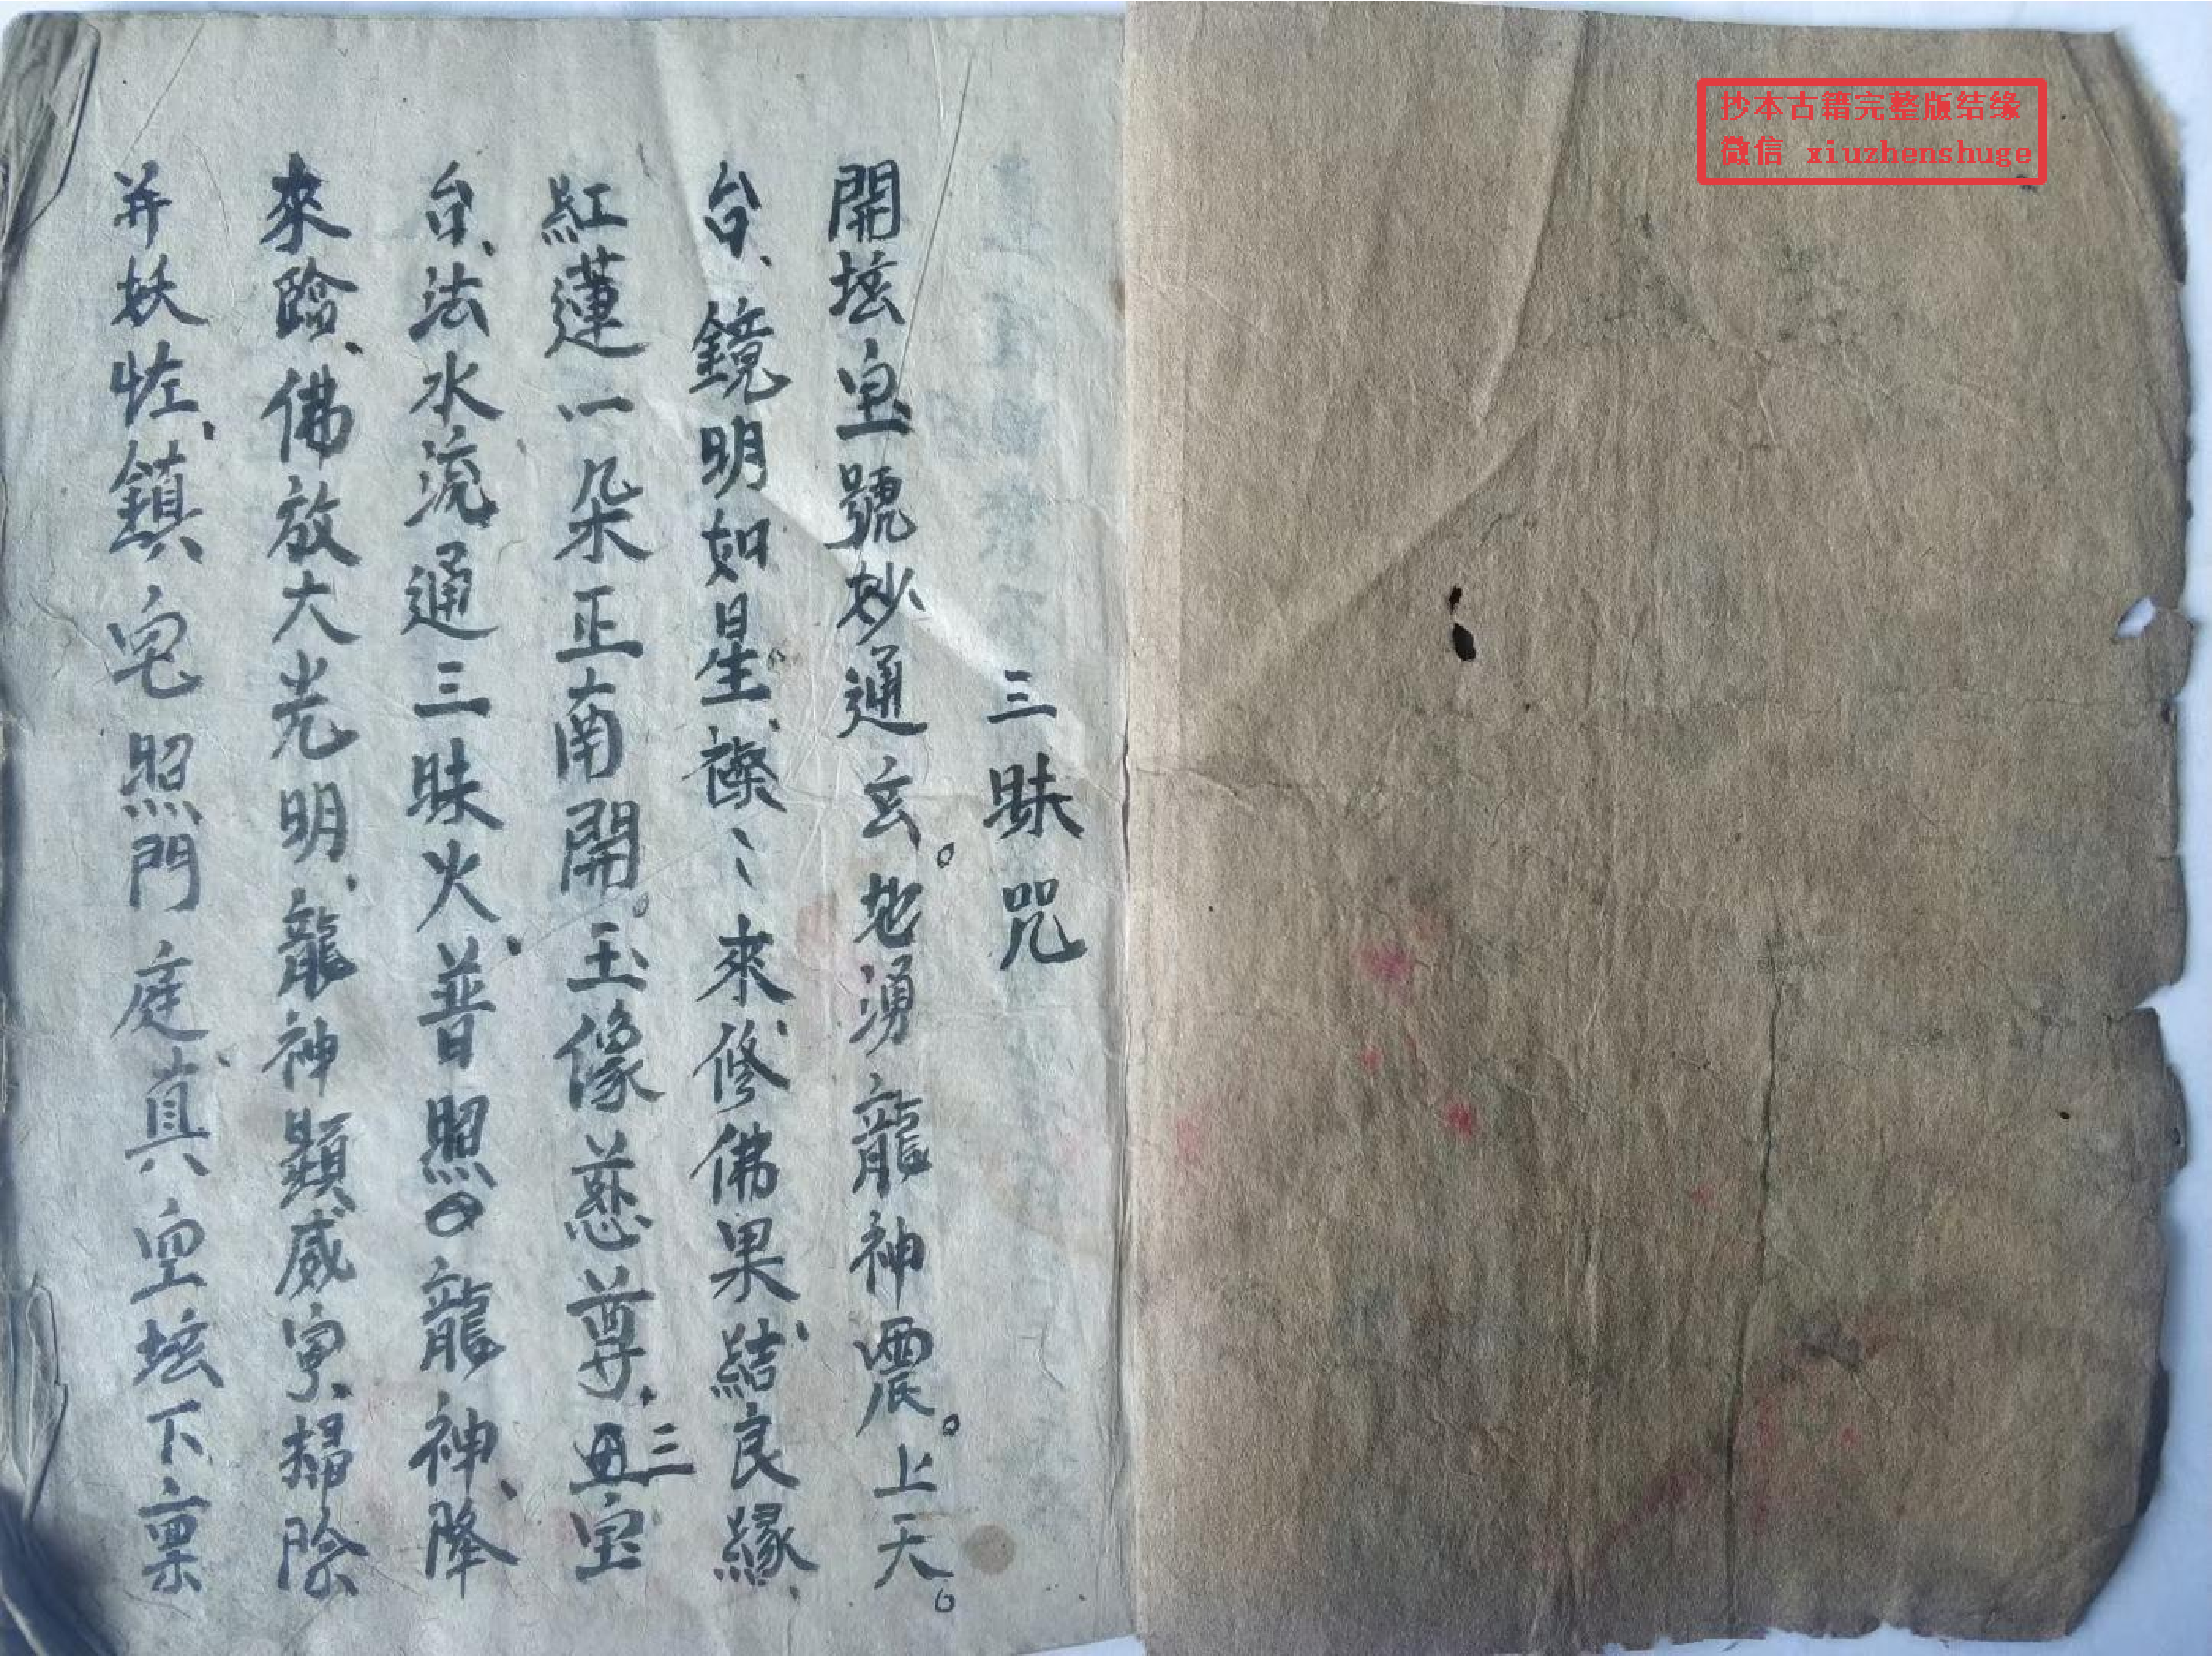 抄本古籍完整版结缘
微信 xiuzhenshuge
三昧咒
開坛皇號妙通玄。地湧龍神震。上天。
台、鏡明如星、襟〻來、修佛果、結良縁、
紅蓮一朵正南開。玉像慈尊、三宝
台、法水流通三昧火、普照龍神、降
來臨、佛放大光明、龍神顕威灵、掃除
并妖怪、鎮宅照門庭、真皇坛下稟